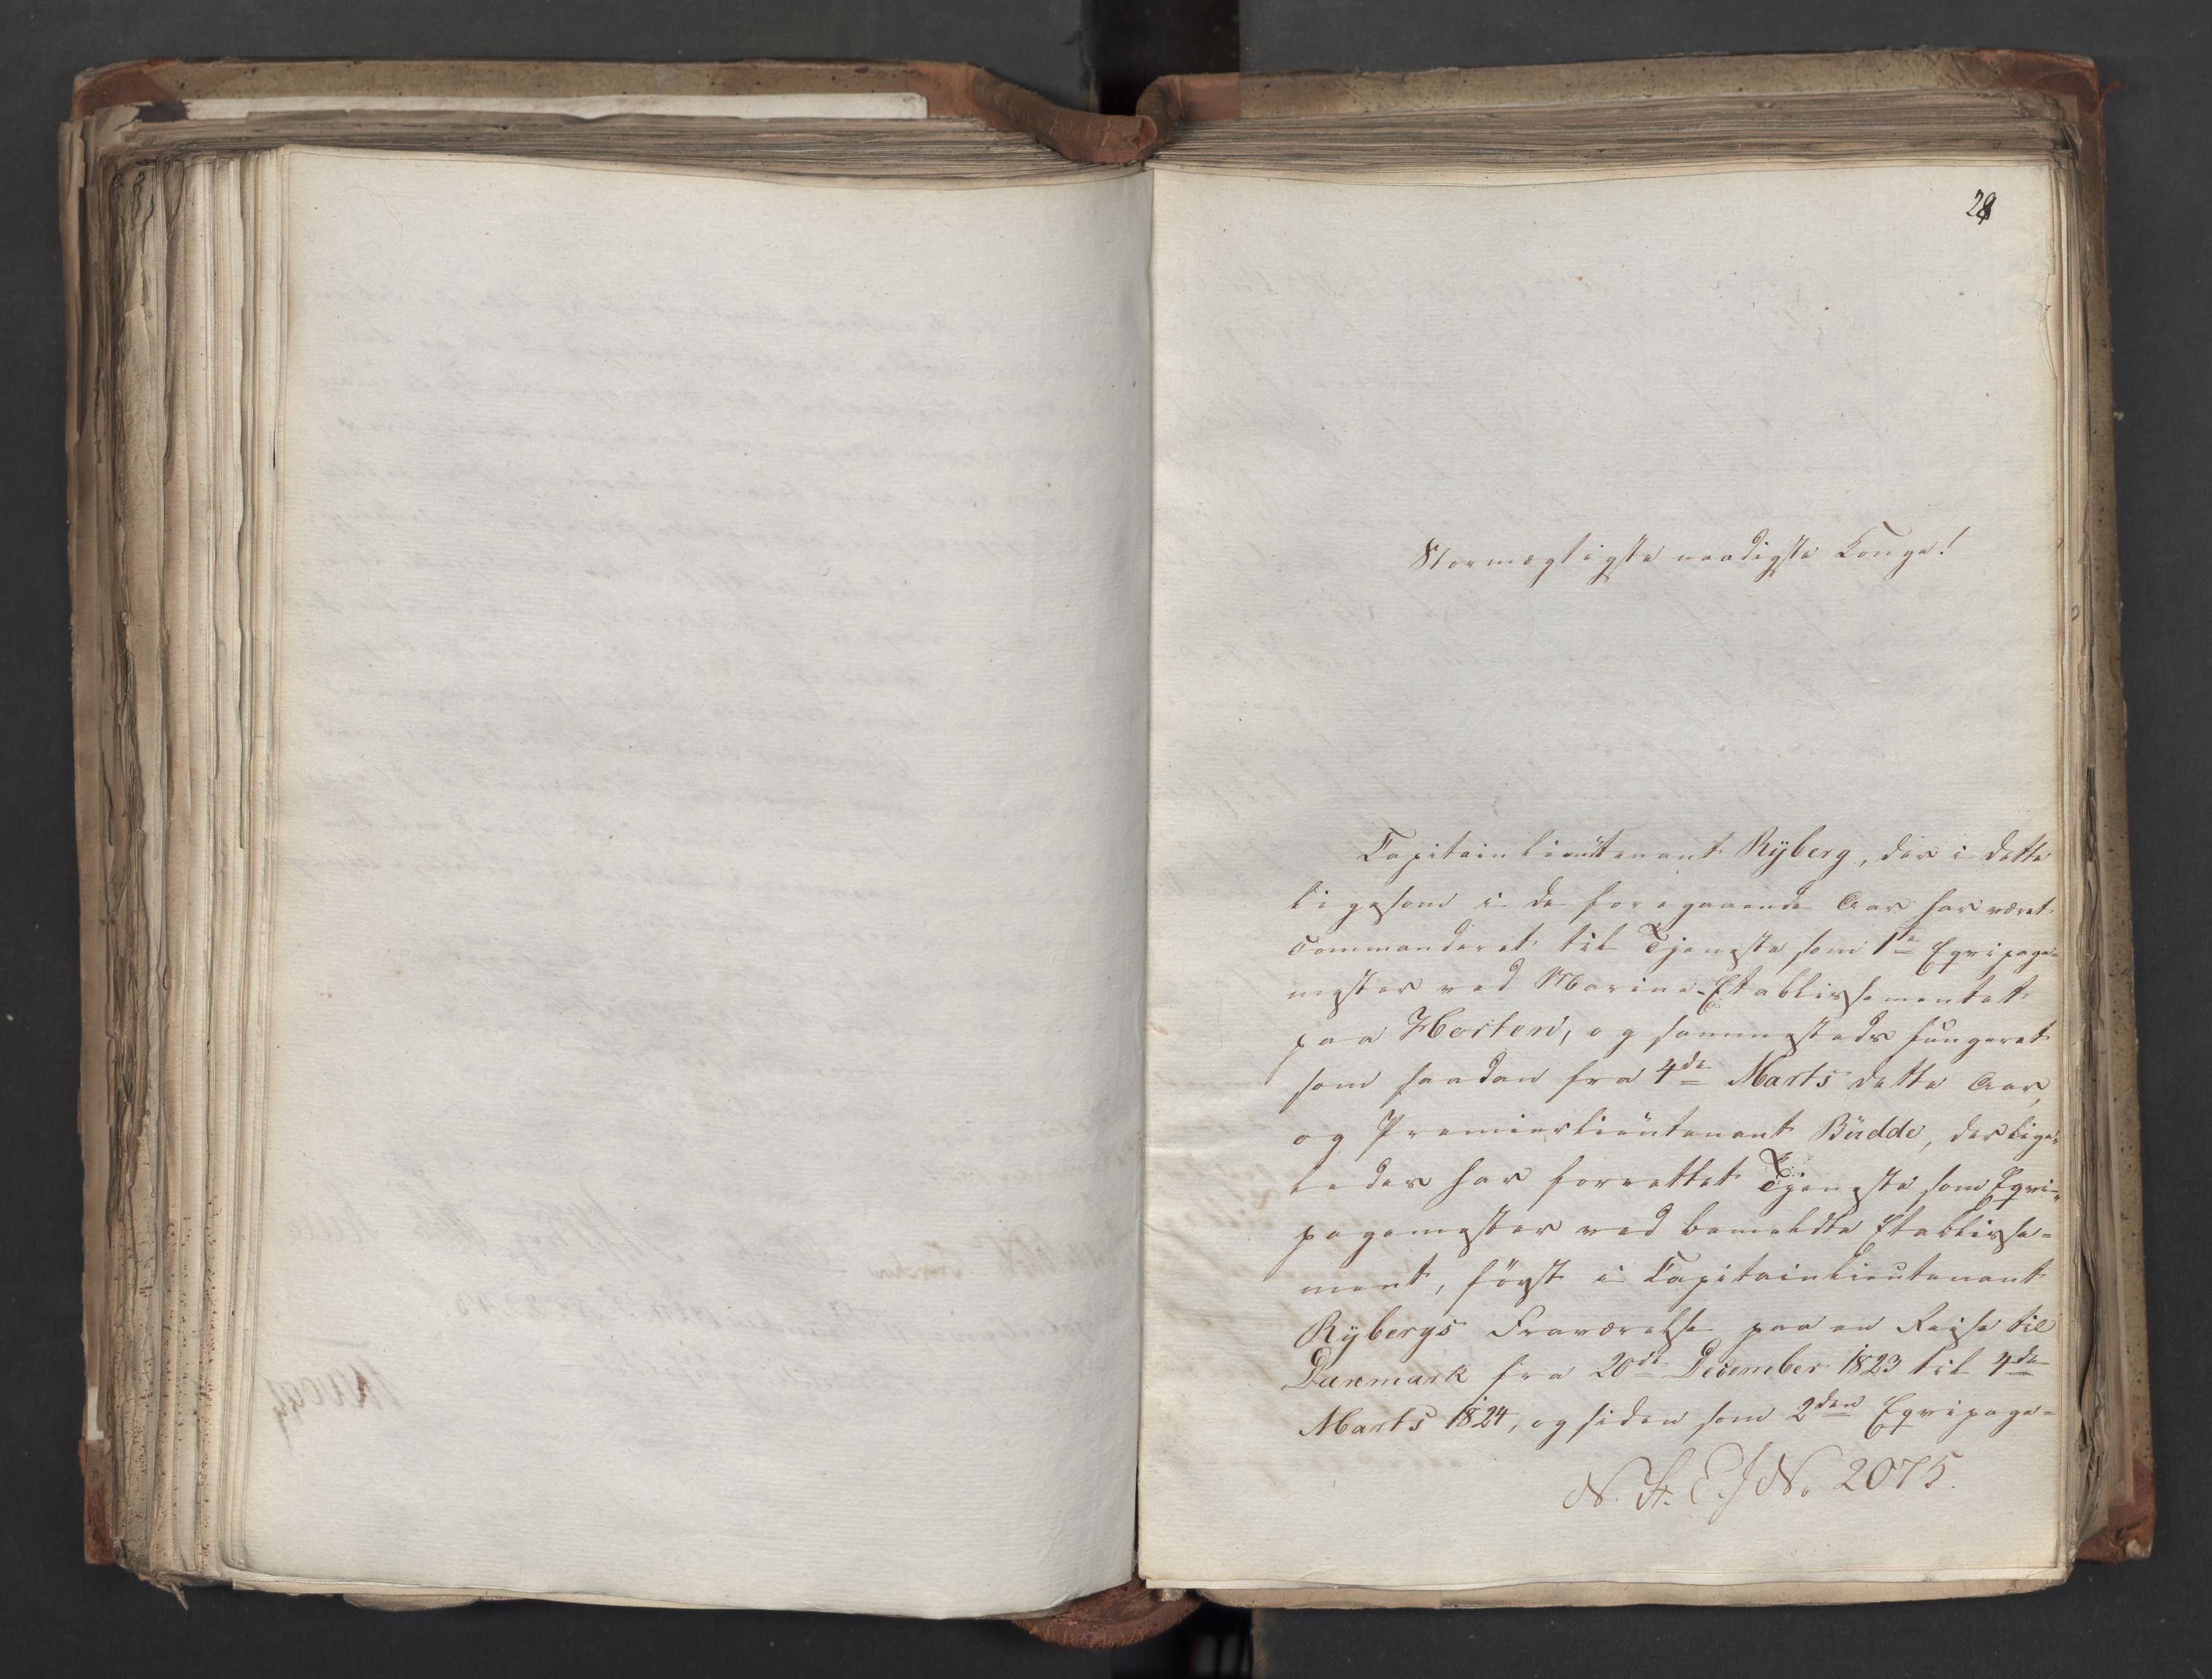 28
Stormægtigste naadigste Konge!
Capitainlieutenant Rÿberg, der i dette
ligesom i de foregaaende Aar har været
Commanderet til Tjeneste som 1ste Eqvipage-
mester ved Marine-Etablissementet
paa Horten, og sammesteds fungeret
som saadan fra 4de Marts dette Aar,
og Premierlieutenant Büdde, der lige-
ledes har forrettet Tjeneste som Eqvi-
pagemester ved bemeldte Etablisse-
ment, først i Capitainlieutenant
Rÿbergs Fraværelse paa en Reise til
Danmark fra 20de December 1823 til 4de
Marts 1824, og siden som 2den Eqvipage-
N. St. E. J No. 2075.